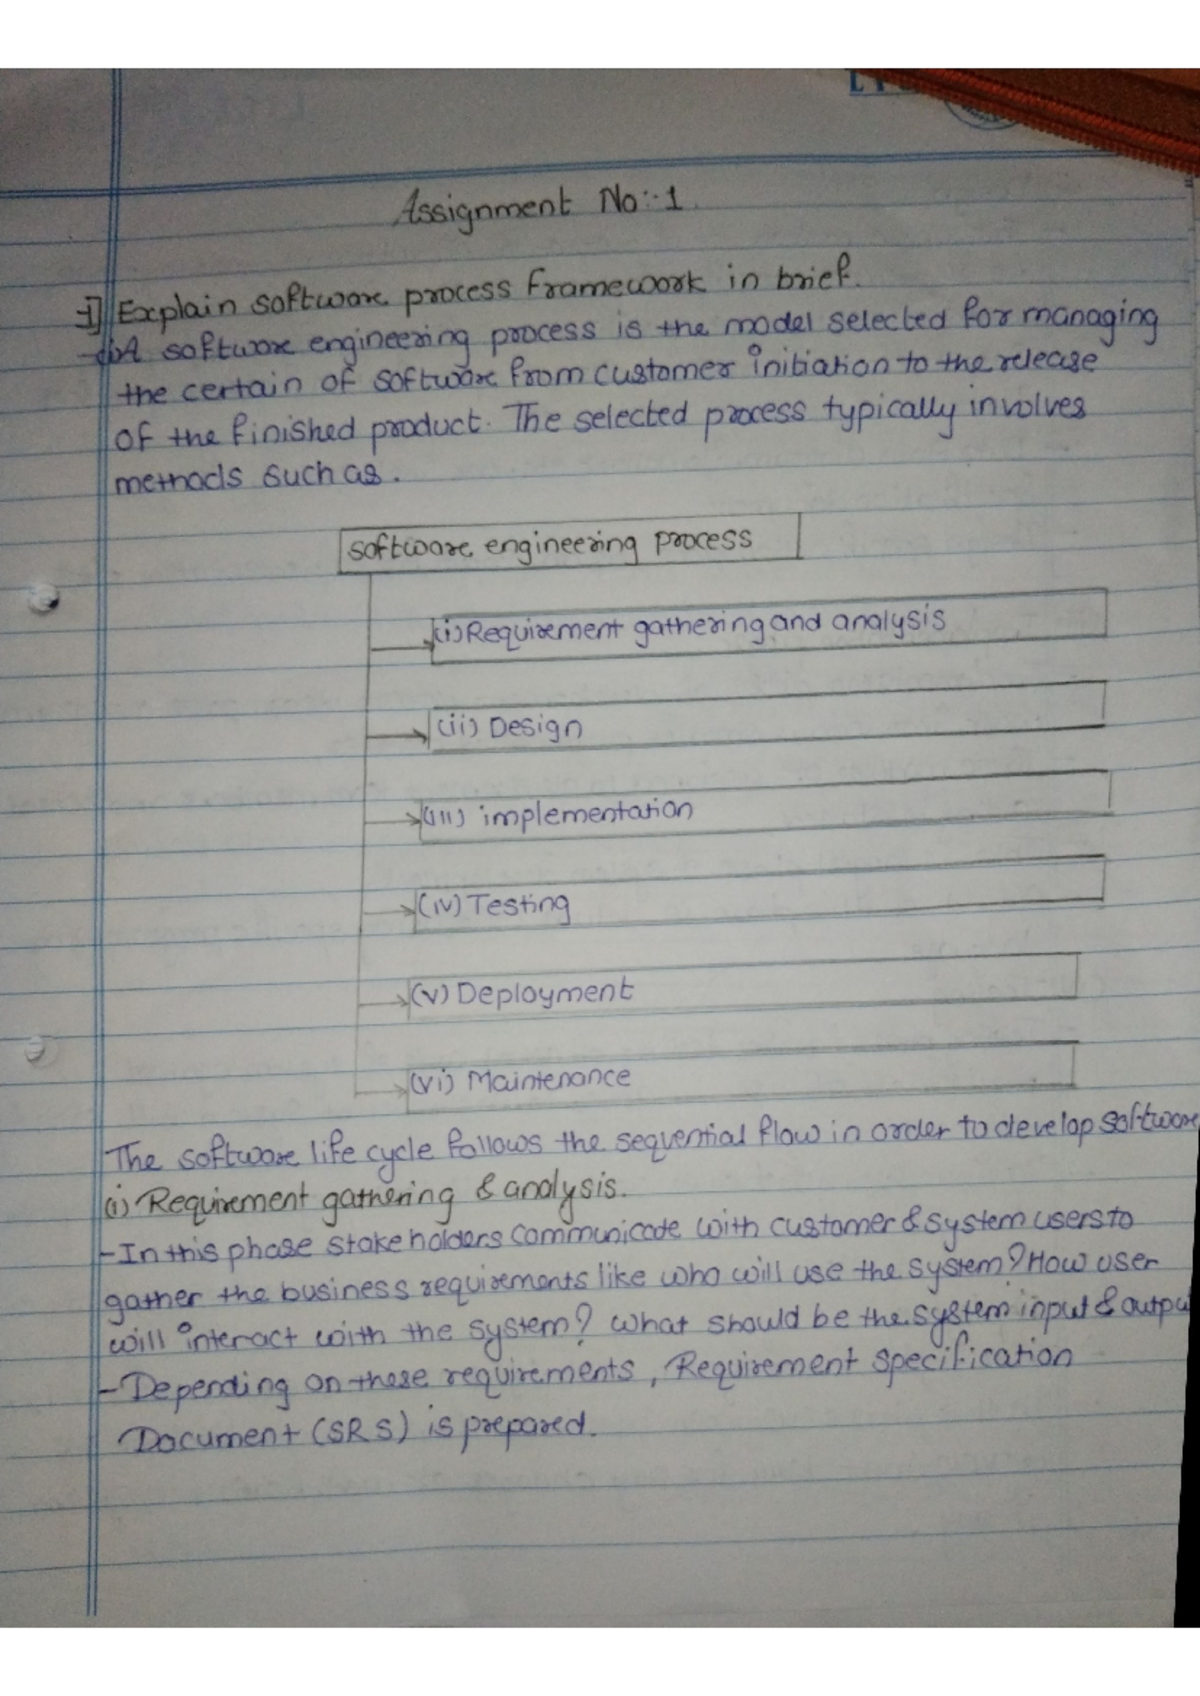 Assignment No:-1.
1] Explain software process framework in brief.
A software engineering process is the model selected for managing
the certain of software from customer initiation to the release
of the finished product. The selected process typically involves
methods such as.
software engineering process
(i) Requirement gathering and analysis
(ii) Design
(iii) implementation
(iv) Testing
(v) Deployment
(vi) Maintenance
The software life cycle follows the sequential flow in order to develop software
(i) Requirement gathering & analysis.
-In this phase stakeholders communicate with customer & system users to
gather the business requirements like who will use the system? How user
will interact with the system? what should be the system input & outpu
-Depending on these requirements, Requirement specification
Document (SRS) is prepared.